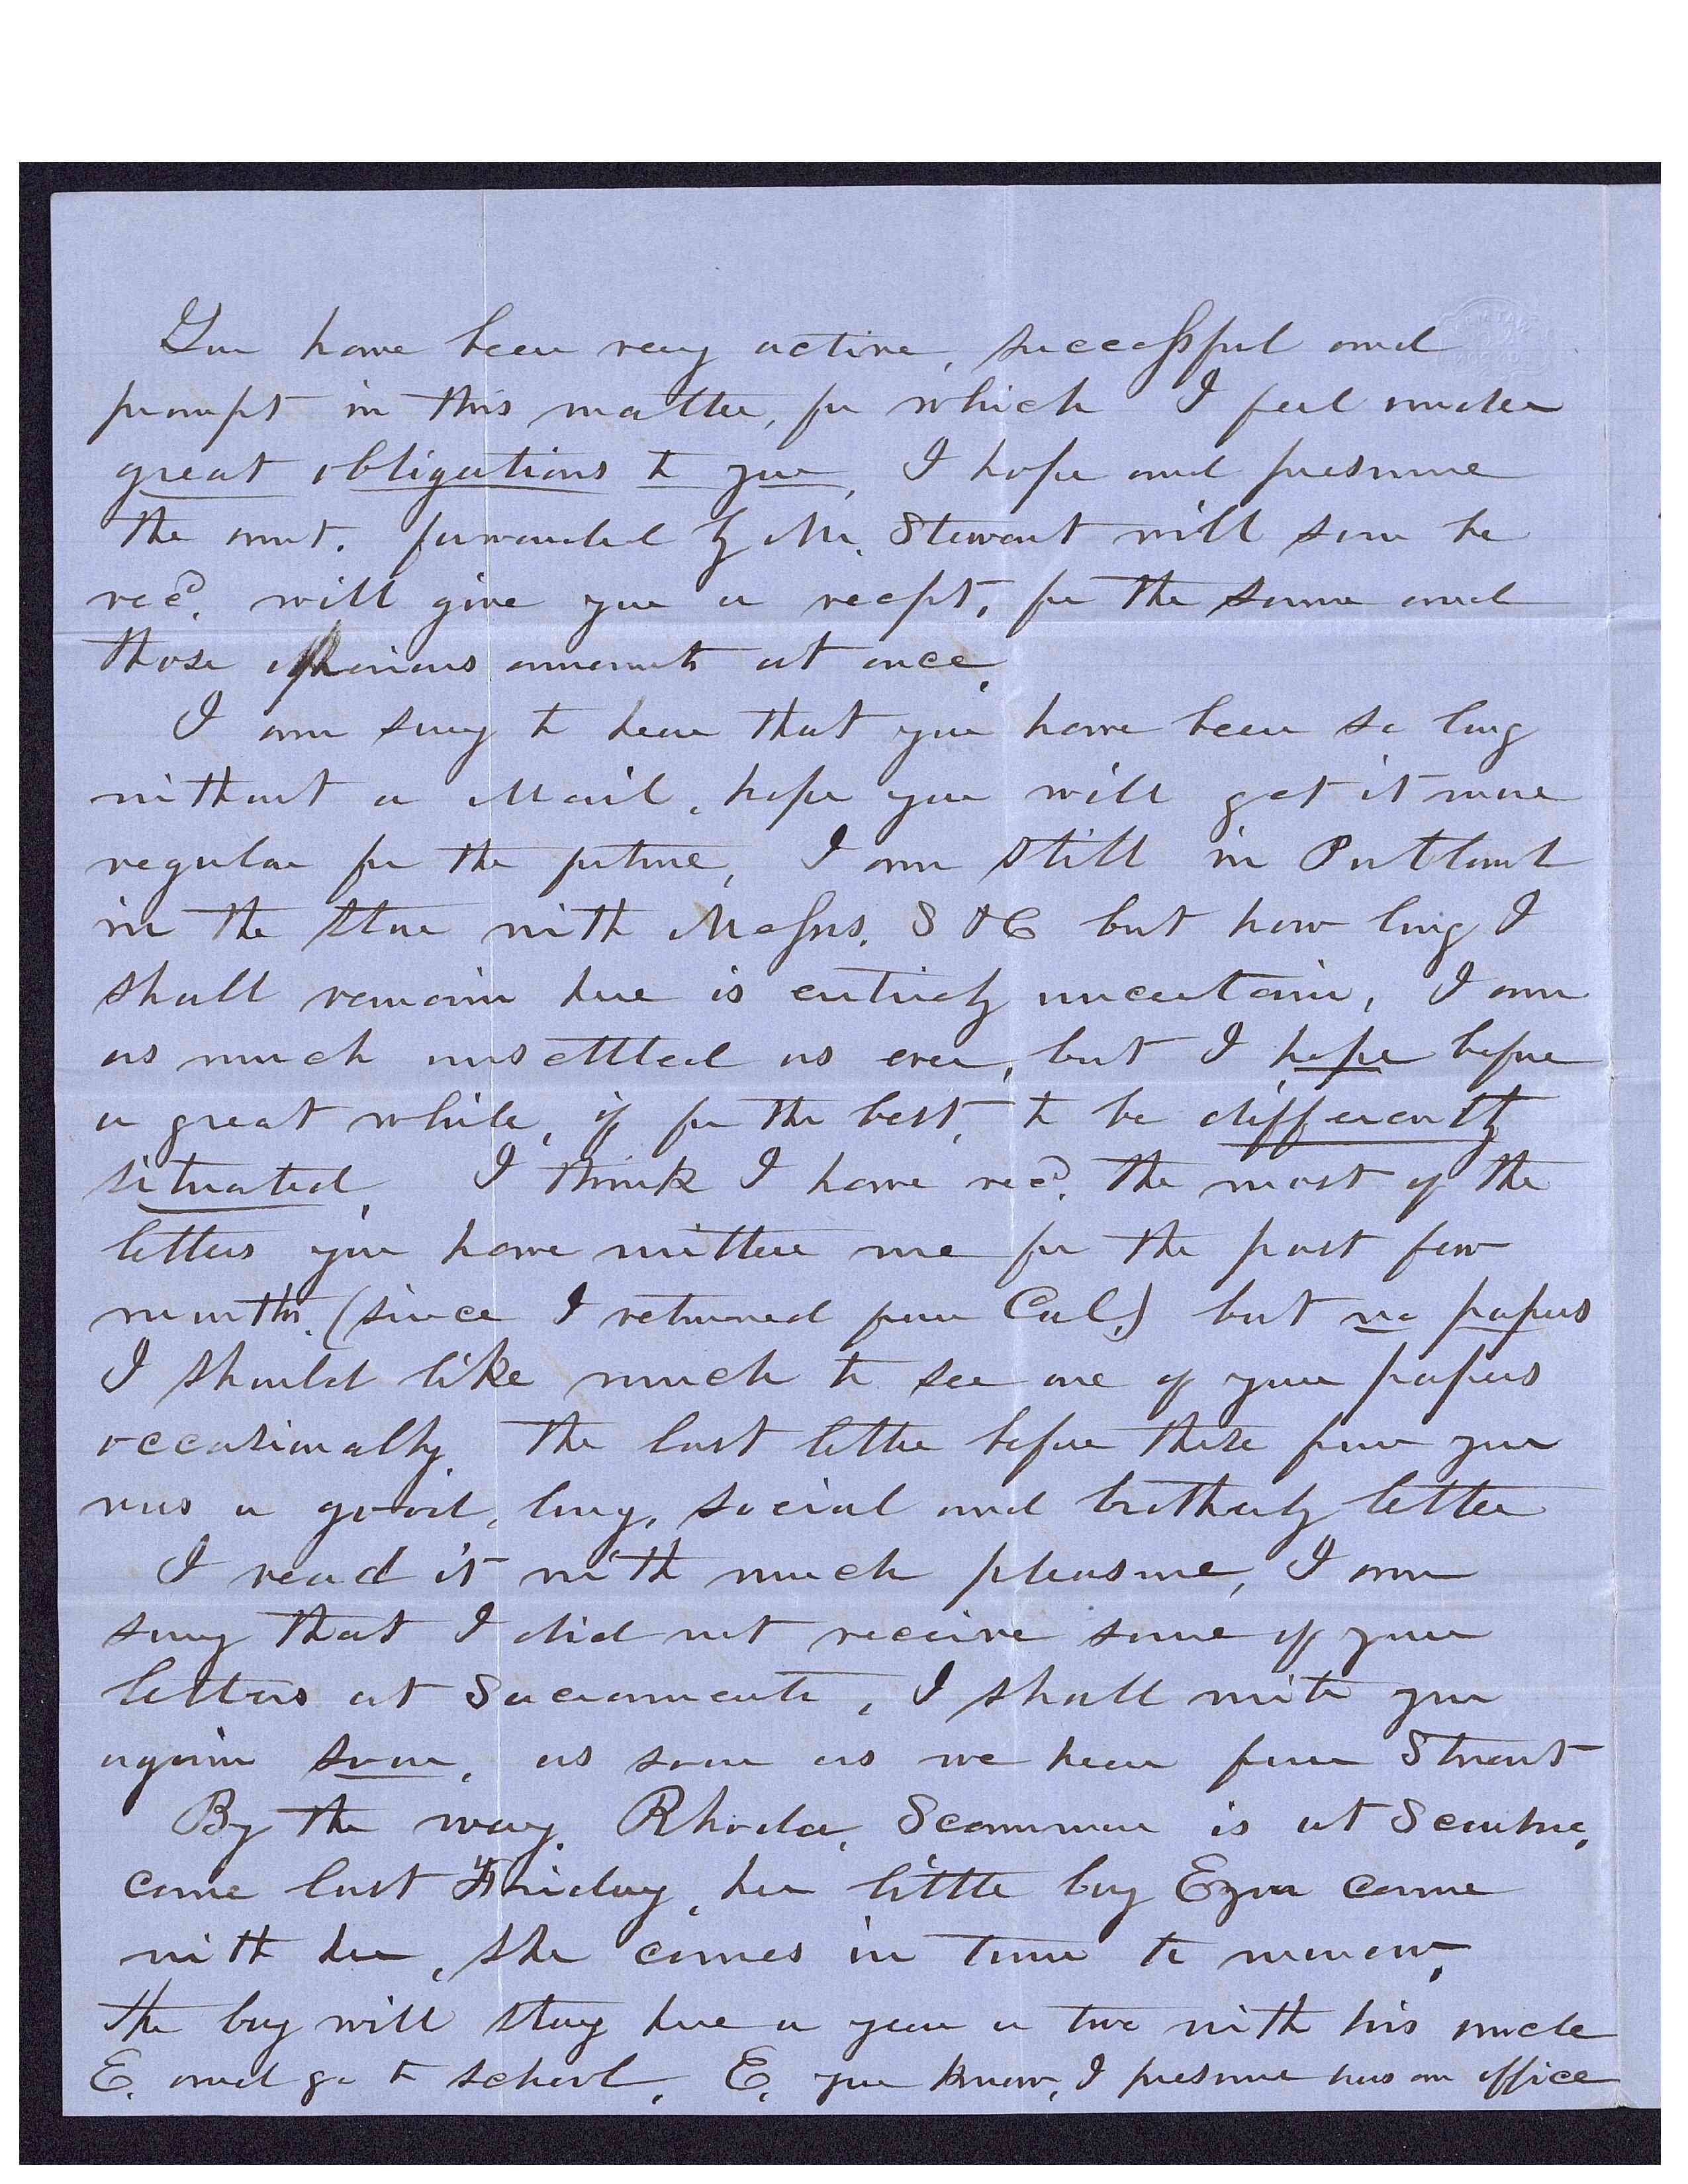 You have been very active, successful and
prompt in this matter, for which I feel under
great obligations to you, I hope and presume
the amt. forwarded by Mr. Stewart will soon be
recd. will give you a recpt, for the same and
those previous amounts at once,
I am sorry to hear that you have been so long
without a Mail, hope you will get it more
regular for the future, I am still in Portland
in the store with Messrs. S & C but how long I
shall remain here is entirely uncertain, I am
as much unsettled as ever, but I hope before
a great while, if for the best, to be differently
situated, I think I have recd. the most of the
letters you have written me for the past few
months. (since I returned from Cal.) but no papers
I should like much to see one of your papers
occasionally. The last letter before these from you
was a good, long, social and brotherly letter
I read it with much pleasure, I am
sorry that I did not receive some of your
letters at Sacramento, I shall write you
again soon, as soon as we hear from Stewart
By the way, Rhoda, Scammon is at Scarboro,
came last Friday, her little boy Ezra came
with her, she comes in town to morrow,
the boy will stay here a year or two with his uncle
E. and go to school, E. you know, I presume has an office